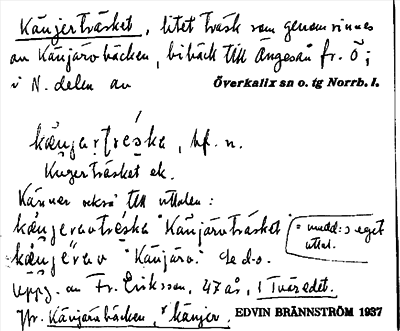 Känjerträsket, litet träsk som genomrinnes
av Känjarobäcken, bibäck till Ängesån fr. Ö;
i N. delen av Överkalix sn o. tg Norrb. l.
kånjartrèska, bf. n.
Kuyerträsket ek.
Känner också till uttalen:
kånjeravtrèska "Känjärvträsket" = medd:s eget
uttal.
kånjèrav "Känjärv". Se d.o.
Uppg. av Fr. Eriksson, 47 år, i Tväredet.
Jfr. Känjarobäcken, *känjer. EDVIN BRÄNNSTRÖM 1937